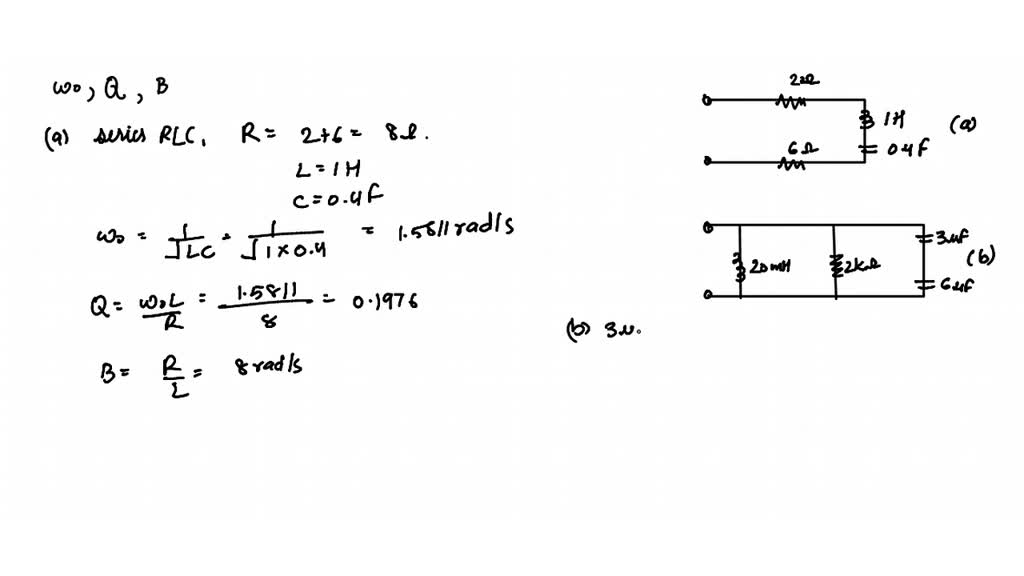 ω₀, Q, B
(a) series RLC, R = 2+6 = 8Ω.
L = 1H
C = 0.4F
ω₀ = 1/√LC = 1/√1×0.4 = 1.5811 rad/s
Q = ω₀L/R = 1.5811/8 = 0.1976
B = R/L = 8 rad/s
2Ω
1H
(a)
6Ω
0.4F
3uF
20mH
2kΩ
(b)
6uF
(b) 3u.